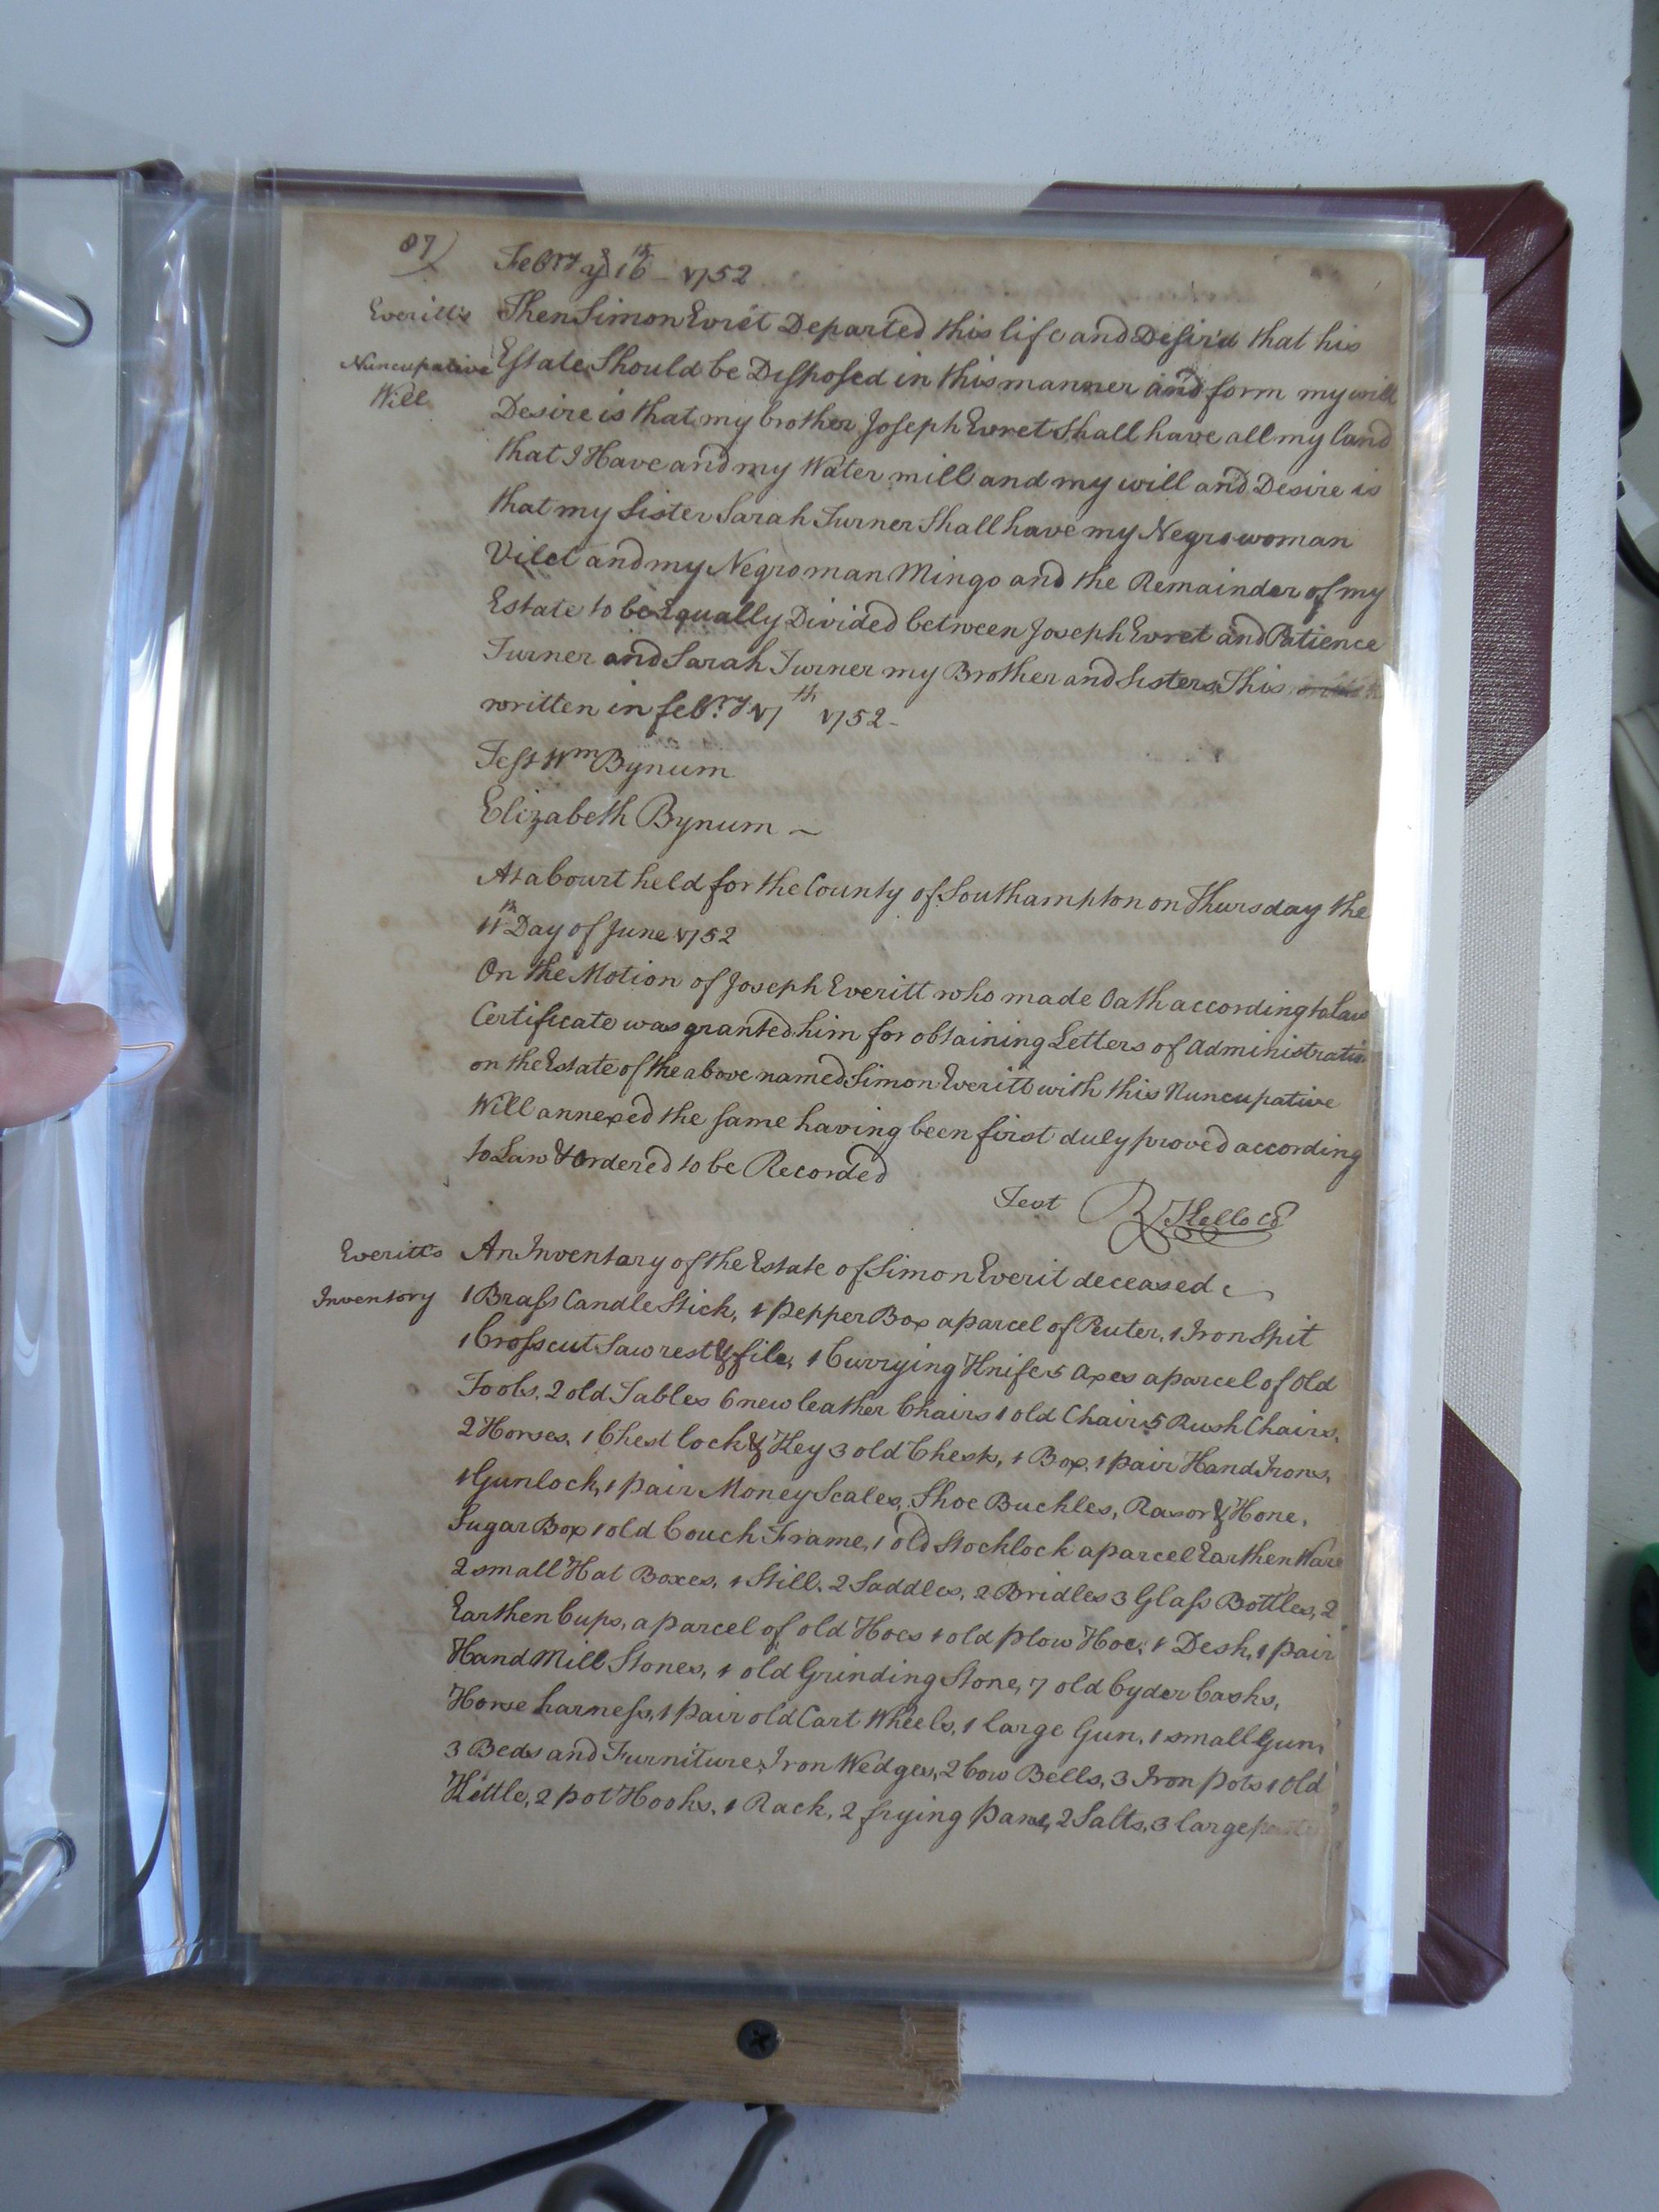 87)
Febry ye 16th 1752
Everitt's
Nuncupative
Will
Then Simon Evret Departed this life and Desir'd that his
Estate Should be Disposed in this manner and form my will
Desire is that my brother Joseph Evret Shall have all my land
that I Have and my Water mill and my will and Desire is
that my Sister Sarah Turner Shall have my Negro woman
Vilet and my Negro man Mingo and the Remainder of my
Estate to be Equally Divided between Joseph Evret and Patience
Turner and Sarah Turner my Brother and Sisters This
written in febry 17th 1752-
Test Wm Bynum
Elizabeth Bynum ~
At a Court held for the County of Southampton on Thursday the
11th Day of June 1752
On the Motion of Joseph Everitt who made Oath according to law
Certificate was granted him for obtaining Letters of Administratio
on the Estate of the above named Simon Everitt with this Nuncupative
Will annexed the same having been first duly proved according
to Law & Ordered to be Recorded
Test R Kello Cl
Everitt's
Inventory
An Inventary of the Estate of Simon Everit deceased
1 Brass Candle Stick, 1 Pepper Box a parcel of Peuter, 1 Iron Spit
1 Cross cut Saw rest & file, 1 Currying Knife 5 Axes a parcel of Old
Tools, 2 old Tables 6 new leather Chairs 1 old Chair 5 Rush Chairs,
2 Horses, 1 Chest lock & Key 3 old Chests, 1 Box, 1 pair Hand Irons,
1 Gunlock, 1 pair Money Scales, Shoe Buckles, Rasor & Hone,
Sugar Box 1 old Couch Frame, 1 old Stocklock a parcel Earthen Ware
2 small Hat Boxes, 1 Still, 2 Saddles, 2 Bridles 3 Glass Bottles, 2
Earthen Cups, a parcel of old Hoes 1 old plow Hoe, 1 Desk, 1 pair
Hand Mill Stones, 1 old Grinding Stone, 7 old Cyder Casks,
Horse harness, 1 pair old Cart Wheels, 1 large Gun, 1 small Gun,
3 Beds and Furniture, Iron Wedges, 2 Cow Bells, 3 Iron Pots 1 Old
Kettle, 2 pot Hooks, 1 Rack, 2 frying Pans, 2 Salts, 3 large